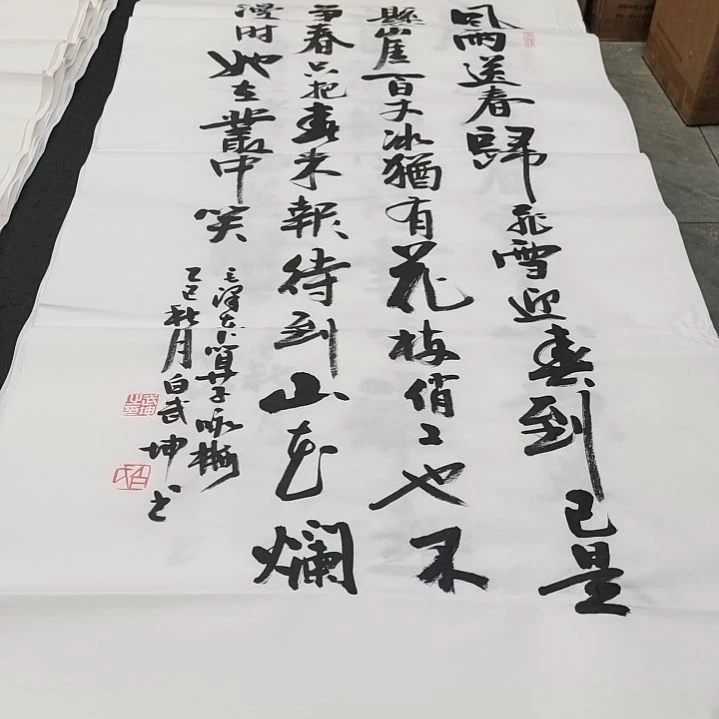 风雨送春歸飛雪迎春到已是
縣崖百丈冰猶有花枝俏〻也不
争春只把春来報待到山花爛
漫时她在叢中笑
毛泽东卜算子咏梅
乙巳秋月白武坤书